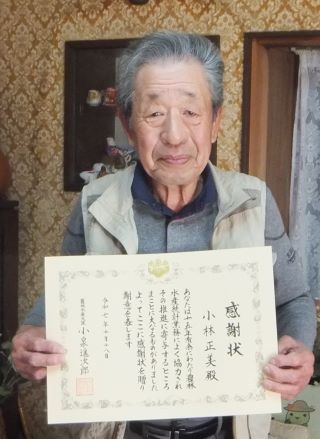 感謝状
小林正美殿
あなたは十五年有余にわたり農林
水産統計業務によく協力され
その推進に寄与するところ
まことに大なるものがありました
よってここに感謝状を贈り
謝意を表します
令和七年十月
農林水産大臣 小泉進次郎